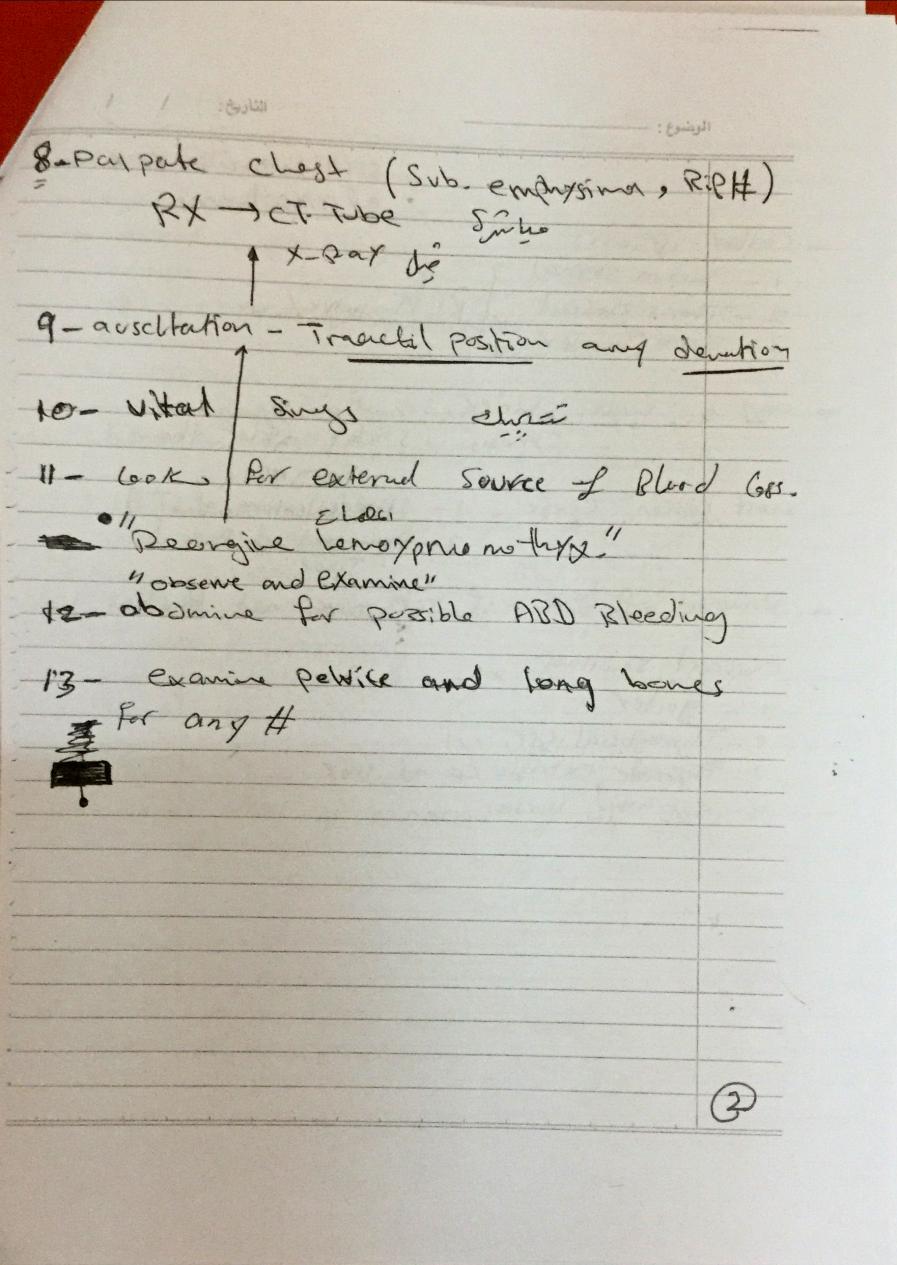 الموضوع: التاريخ: / /
8- Palpate chest (Sub. emphysima, Rip #)
RX → CT-Tube مباشرة
X-Ray قبل
9- auscltation - Traactil position any deviation
10- Vital Sings
11- Look for external Source of Blood Loss.
"observe and examine"
12- abdmine for possible ABD Bleeding
13- examine pelvice and long bones
for any #
2